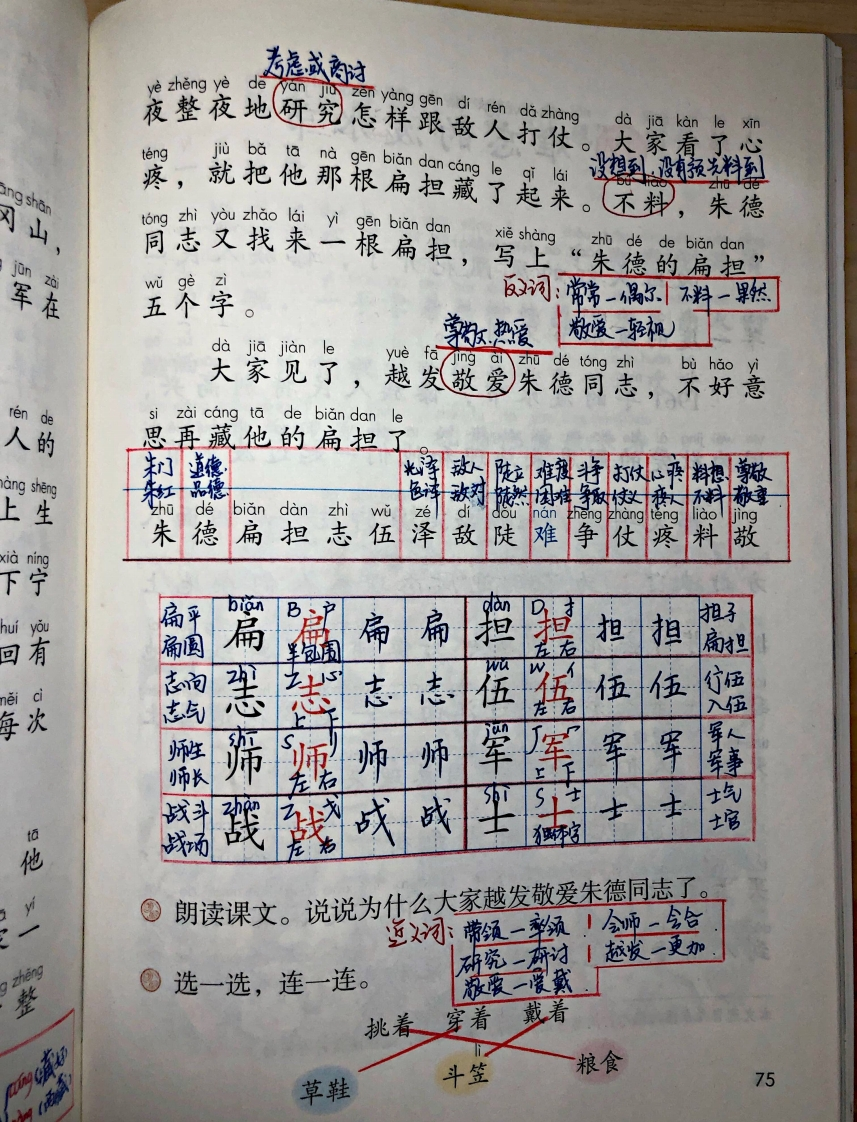 考虑或商讨
yè zhěng yè de yán jiū zěn yàng gēn dí rén dǎ zhàng dà jiā kàn le xīn
夜整夜地研究怎样跟敌人打仗。大家看了心
téng jiù bǎ tā nà gēn biǎn dan cáng le qǐ lái
没想到 没有预先料到
bú liào zhū dé
疼，就把他那根扁担藏了起来。不料，朱德
tóng zhì yòu zhǎo lái yì gēn biǎn dan xiě shàng zhū dé de biǎn dan
同志又找来一根扁担，写上“朱德的扁担”
wǔ gè zì
五个字。
反义词：常常—偶尔 不料—果然
敬爱—轻视
尊敬、热爱
dà jiā jiàn le yuè fā jìng ài zhū dé tóng zhì bù hǎo yì
大家见了，越发敬爱朱德同志，不好意
si zài cáng tā de biǎn dan le
思再藏他的扁担了。
朱门 道德 光泽 敌人 陡立 难度 斗争 打仗 心疼 料想 尊敬
朱红 品德 色泽 敌对 陡然 困难 争取 仗义 疼人 不料 敬重
zhū dé biǎn dàn zhì wǔ zé dí dǒu nán zhēng zhàng téng liào jìng
朱 德 扁 担 志 伍 泽 敌 陡 难 争 仗 疼 料 敬
biǎn B 户 dàn D 扌
扁平 扁 扁 扁 扁 担 担 担 担 担子
扁圆 半包围 左 右 扁担
zhì Z 心 wǔ W 亻
志向 志 志 志 志 伍 伍 伍 伍 行伍
志气 上 下 左 右 入伍
shī S jūn J 冖
师生 师 师 师 师 军 军 军 军 军人
师长 左 右 上 下 军事
zhàn Z 戈 shì S 士
战斗 战 战 战 战 士 士 士 士 士气
战场 左 右 独体字 士官
朗读课文。说说为什么大家越发敬爱朱德同志了。
近义词：带领—率领 会师—会合
研究—研讨 越发—更加
敬爱—爱戴
选一选，连一连。
挑着 穿着 戴着
lì
草鞋 斗笠 粮食
75
冈山，
jūn zài
军在
rén de
人的
shēng
上生
xià níng
下宁
huí yǒu
回有
měi cì
每次
tā
他
yí
一
zhěng
整